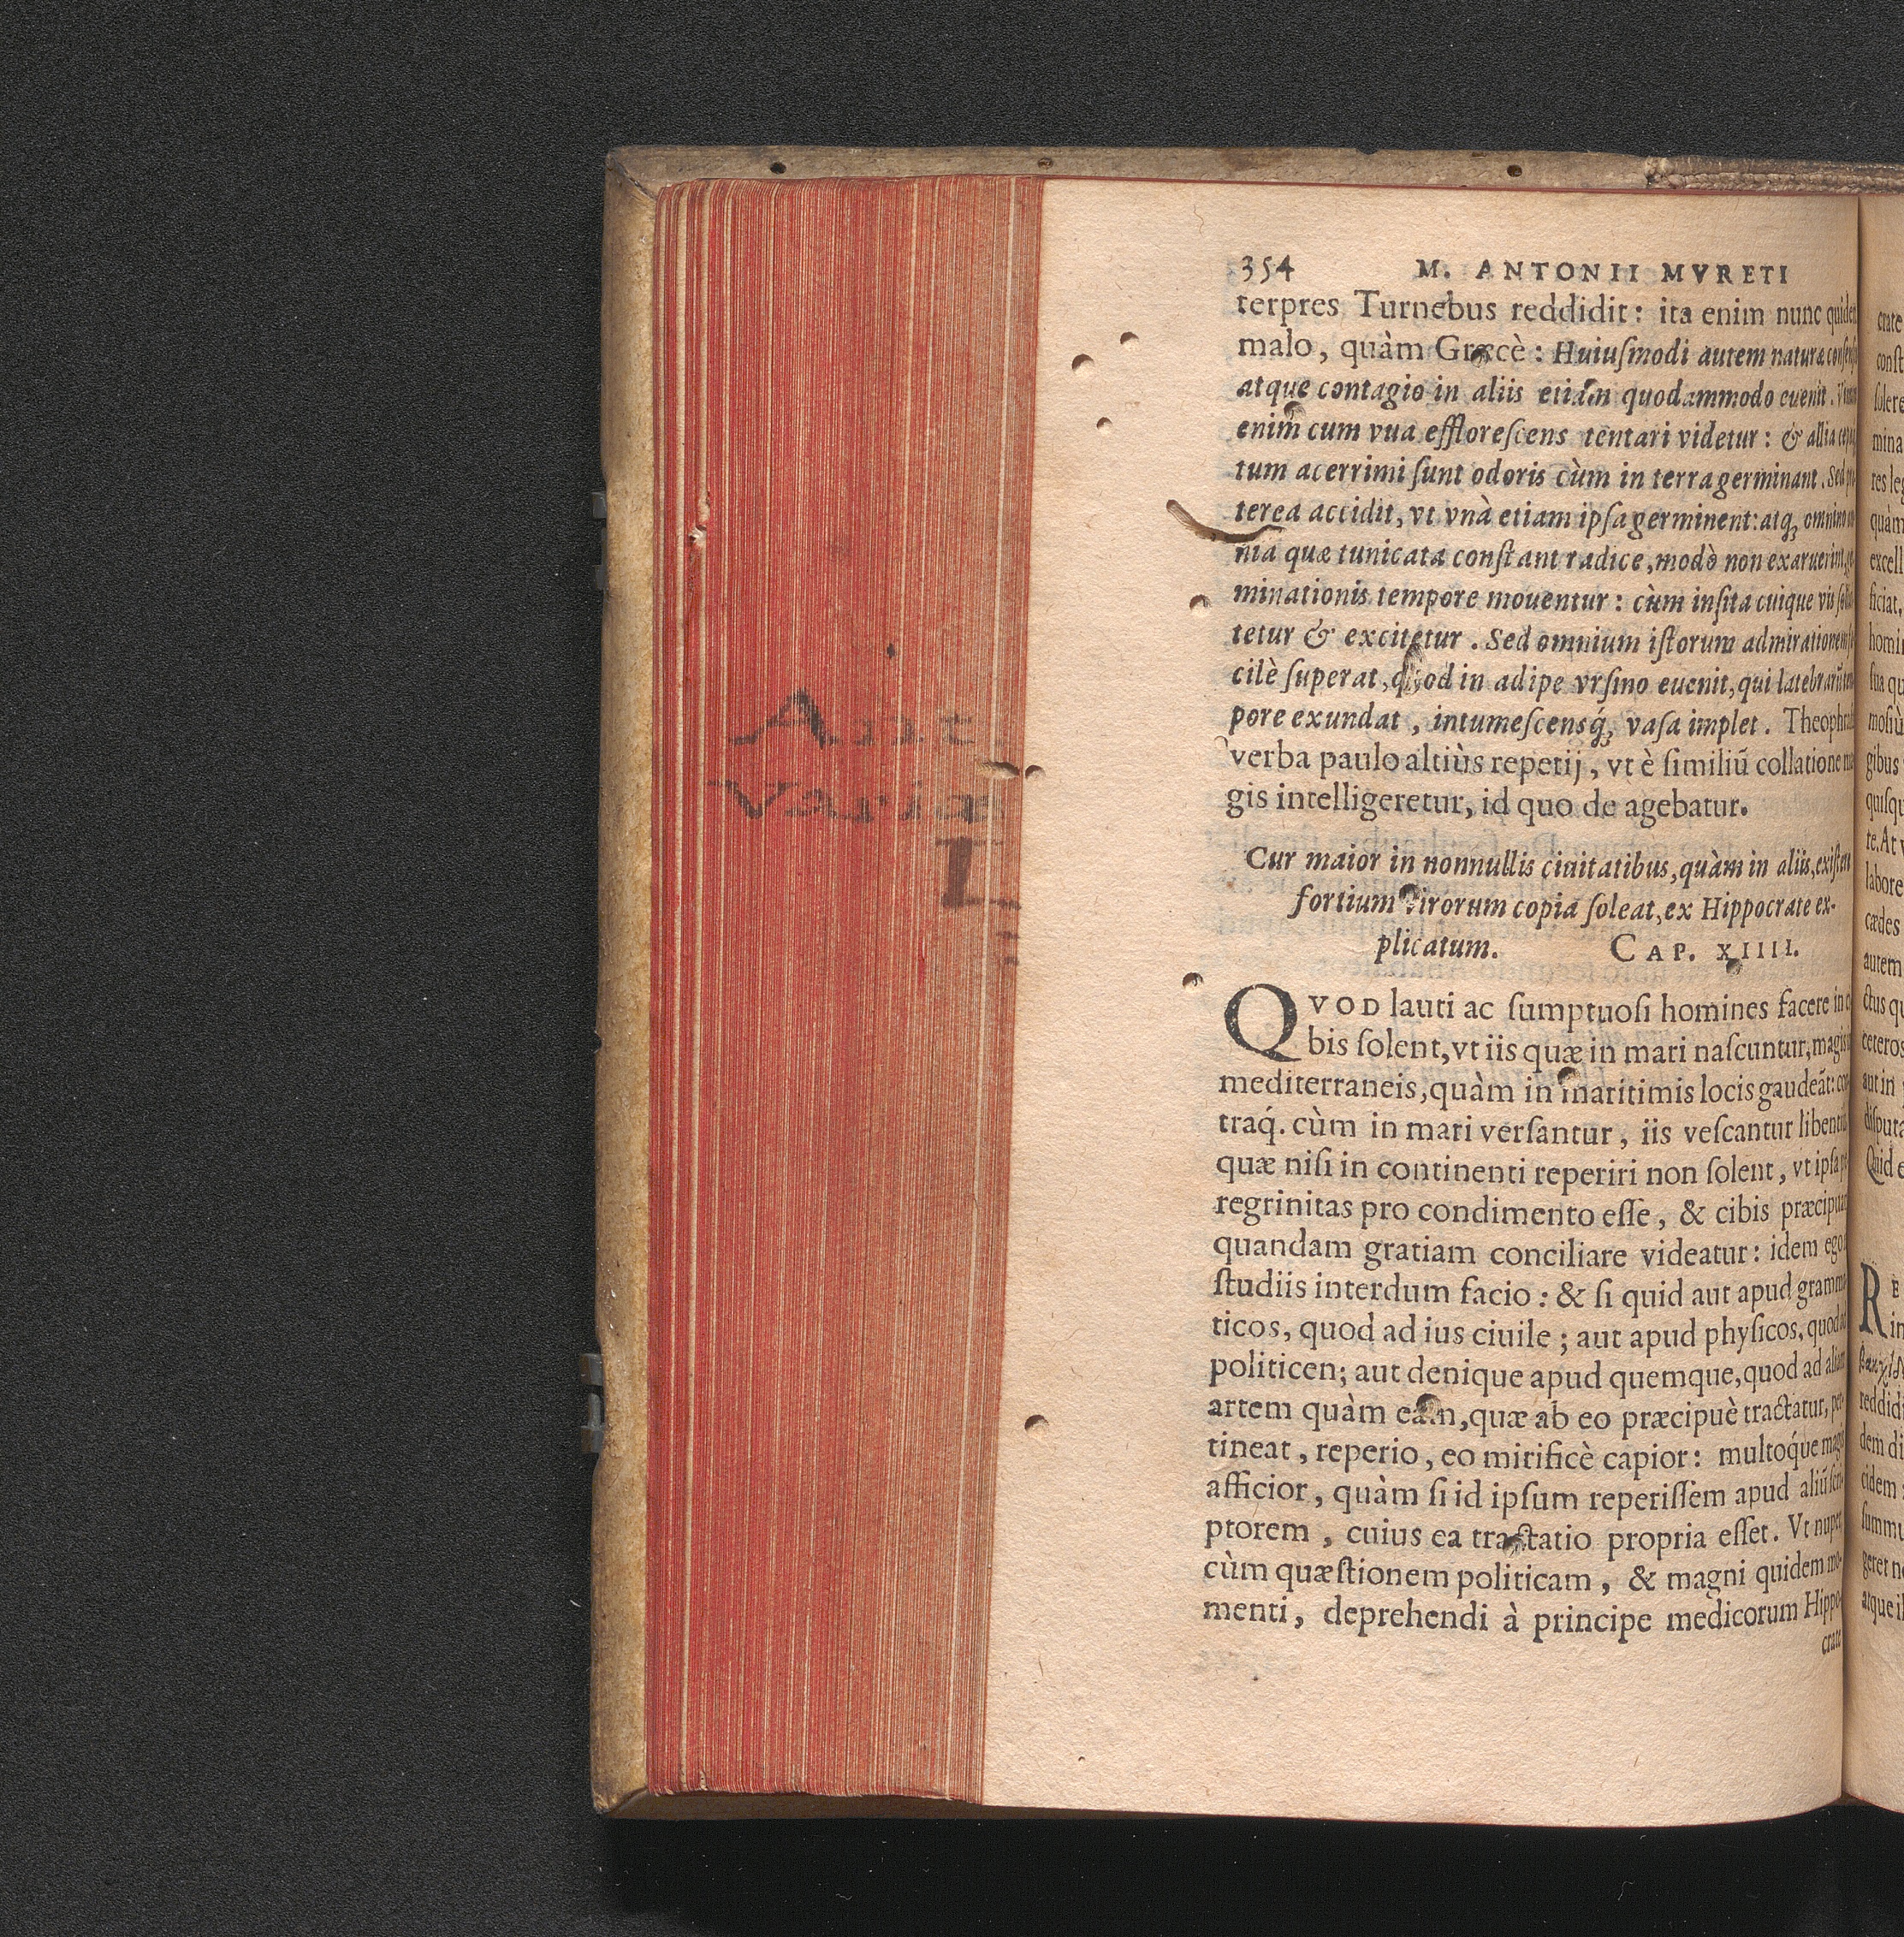 Ant.
Variæ
L
354 M. ANTONII MVRETI
terpres Turnebus reddidit: ita enim nunc quidem
malo, quàm Græcè: Huiuſmodi autem naturæ conſenſus
atque contagio in aliis etiam quodammodo euenit. Vinum
enim cum vua effloreſcens tentari videtur: & allia
tum acerrimi ſunt odoris cùm in terra germinant. Sed
terea accidit, vt vnà etiam ipſa germinent: atq; omnino
nia quæ tunicata conſtant radice, modò non exaruerint,
minationis tempore mouentur: cùm inſita cuique vis
tetur & excitetur. Sed omnium iſtorum admirationem
cilè ſuperat, quod in adipe vrſino euenit, qui latebrarū
pore exundat, intumeſcensq́; vaſa implet. Theophra
verba paulo altiùs repetij, vt è ſimiliū collatione ma
gis intelligeretur, id quo de agebatur.
Cur maior in nonnullis ciuitatibus, quàm in aliis, exiſtere
fortium virorum copia ſoleat, ex Hippocrate ex-
plicatum. CAP. XIIII.
QVOD lauti ac ſumptuoſi homines facere in
bis ſolent, vt iis quæ in mari naſcuntur, magis
mediterraneis, quàm in maritimis locis gaudeāt: con
traq́. cùm in mari verſantur, iis veſcantur libentiùs
quæ niſi in continenti reperiri non ſolent, vt ipſa pe
regrinitas pro condimento eſſe, & cibis præcipuam
quandam gratiam conciliare videatur: idem ego
ſtudiis interdum facio: & ſi quid aut apud gramma
ticos, quod ad ius ciuile; aut apud phyſicos, quod ad
politicen; aut denique apud quemque, quod ad aliam
artem quàm eam, quæ ab eo præcipuè tractatur, per-
tineat, reperio, eo mirificè capior: multoq́ue magis
afficior, quàm ſi id ipſum reperiſſem apud aliū ſcri-
ptorem, cuius ea tractatio propria eſſet. Vt nuper
cùm quæſtionem politicam, & magni quidem mo-
menti, deprehendi à principe medicorum Hippo-
crate
crate
conſt
ſolere
mina
res leg
quàm
excell
ficiat,
homin
ſua qu
moſiù
gibus
quiſqu
te. At v
labore
cædes
autem
ctus qu
ceteros
aut in
diſputa
Quid e
RE
in
reddidi
dem di
cidem
ſummu
geret n
atque il